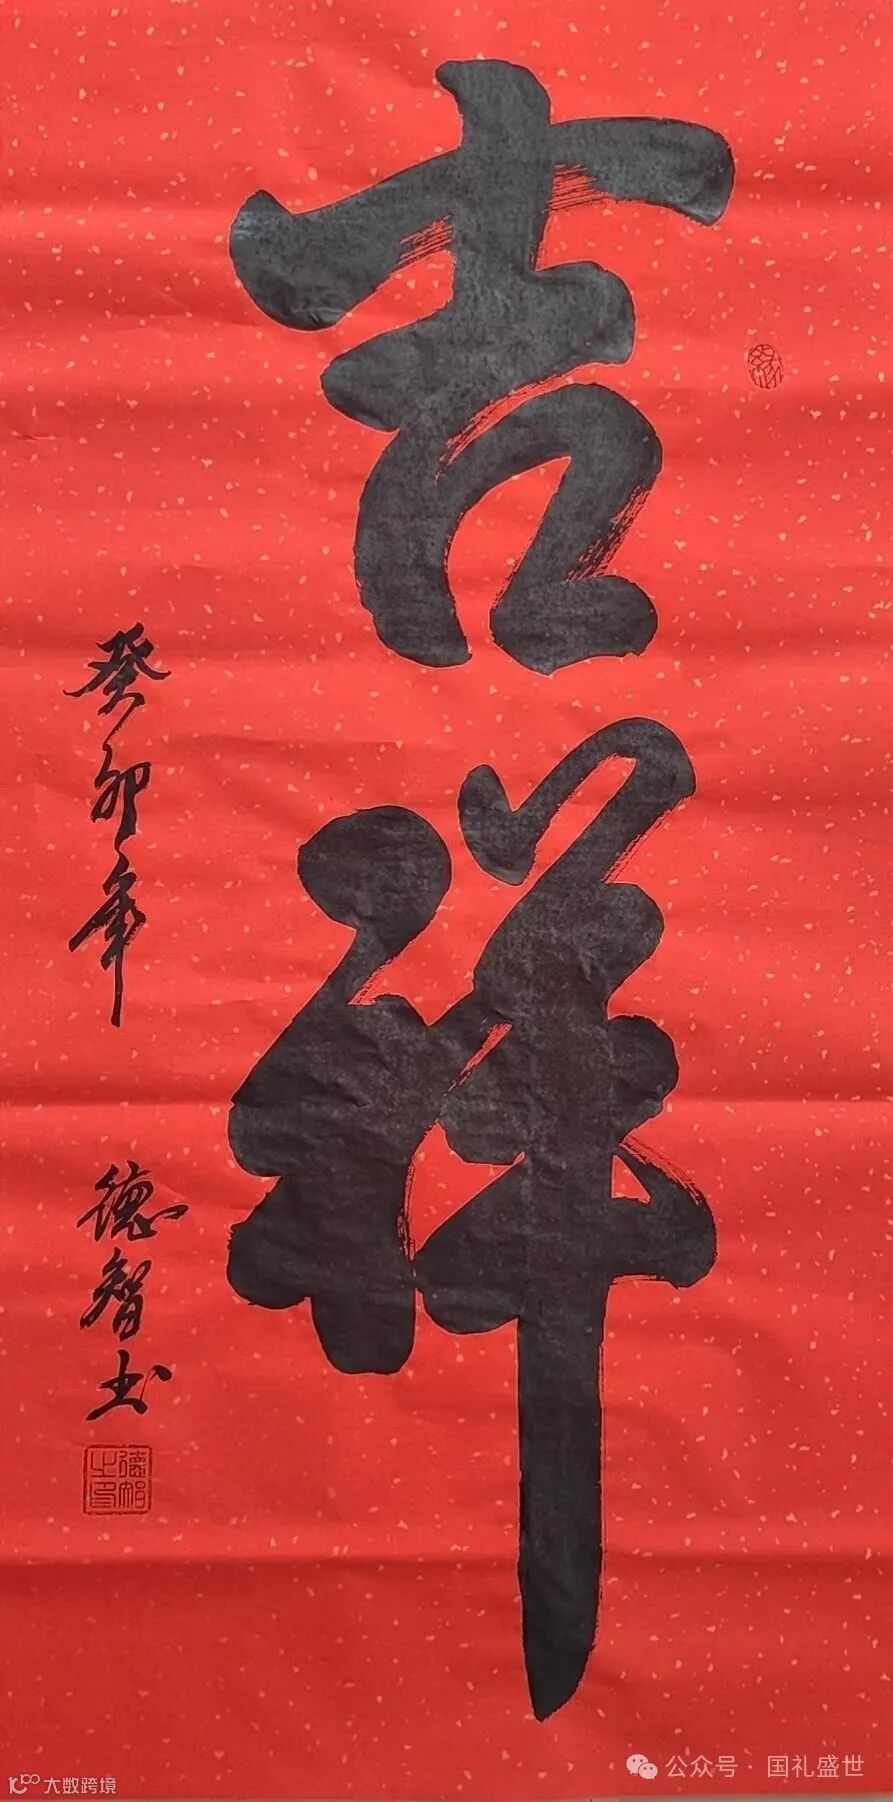 吉祥
癸卯年
德智书
缘
公众号·国礼盛世
大数跨境